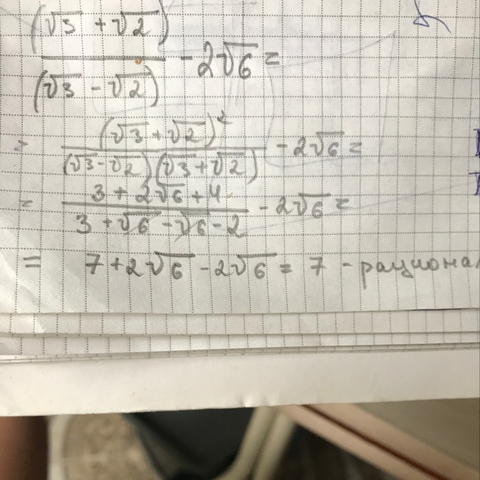 (√3 + √2) / (√3 - √2) - 2√6 =
= (√3 + √2)² / (√3 - √2)(√3 + √2) - 2√6 =
= 3 + 2√6 + 4 / 3 + √6 - √6 - 2 - 2√6 =
= 7 + 2√6 - 2√6 = 7 - рационал